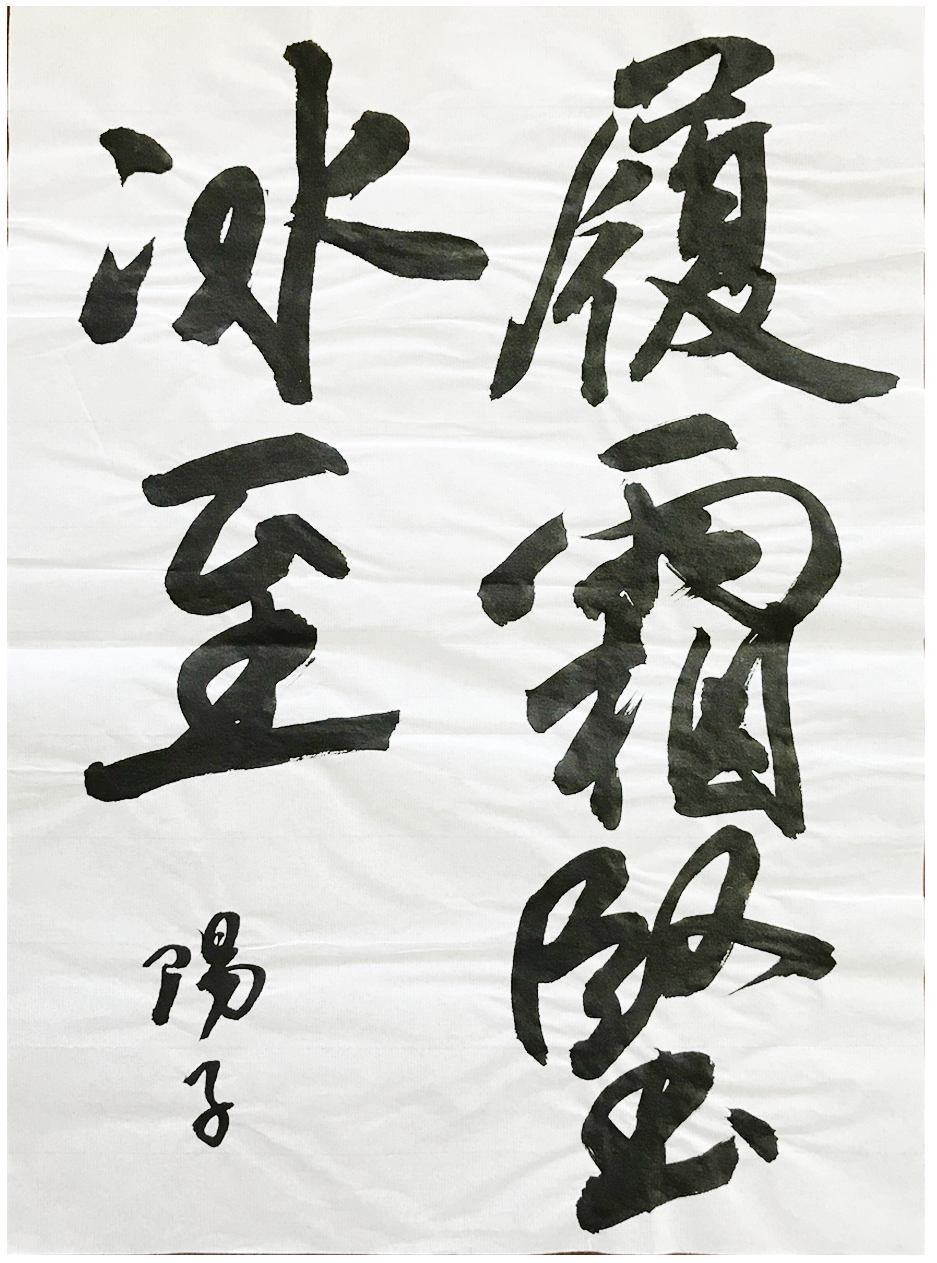 履霜堅
冰至
陽子